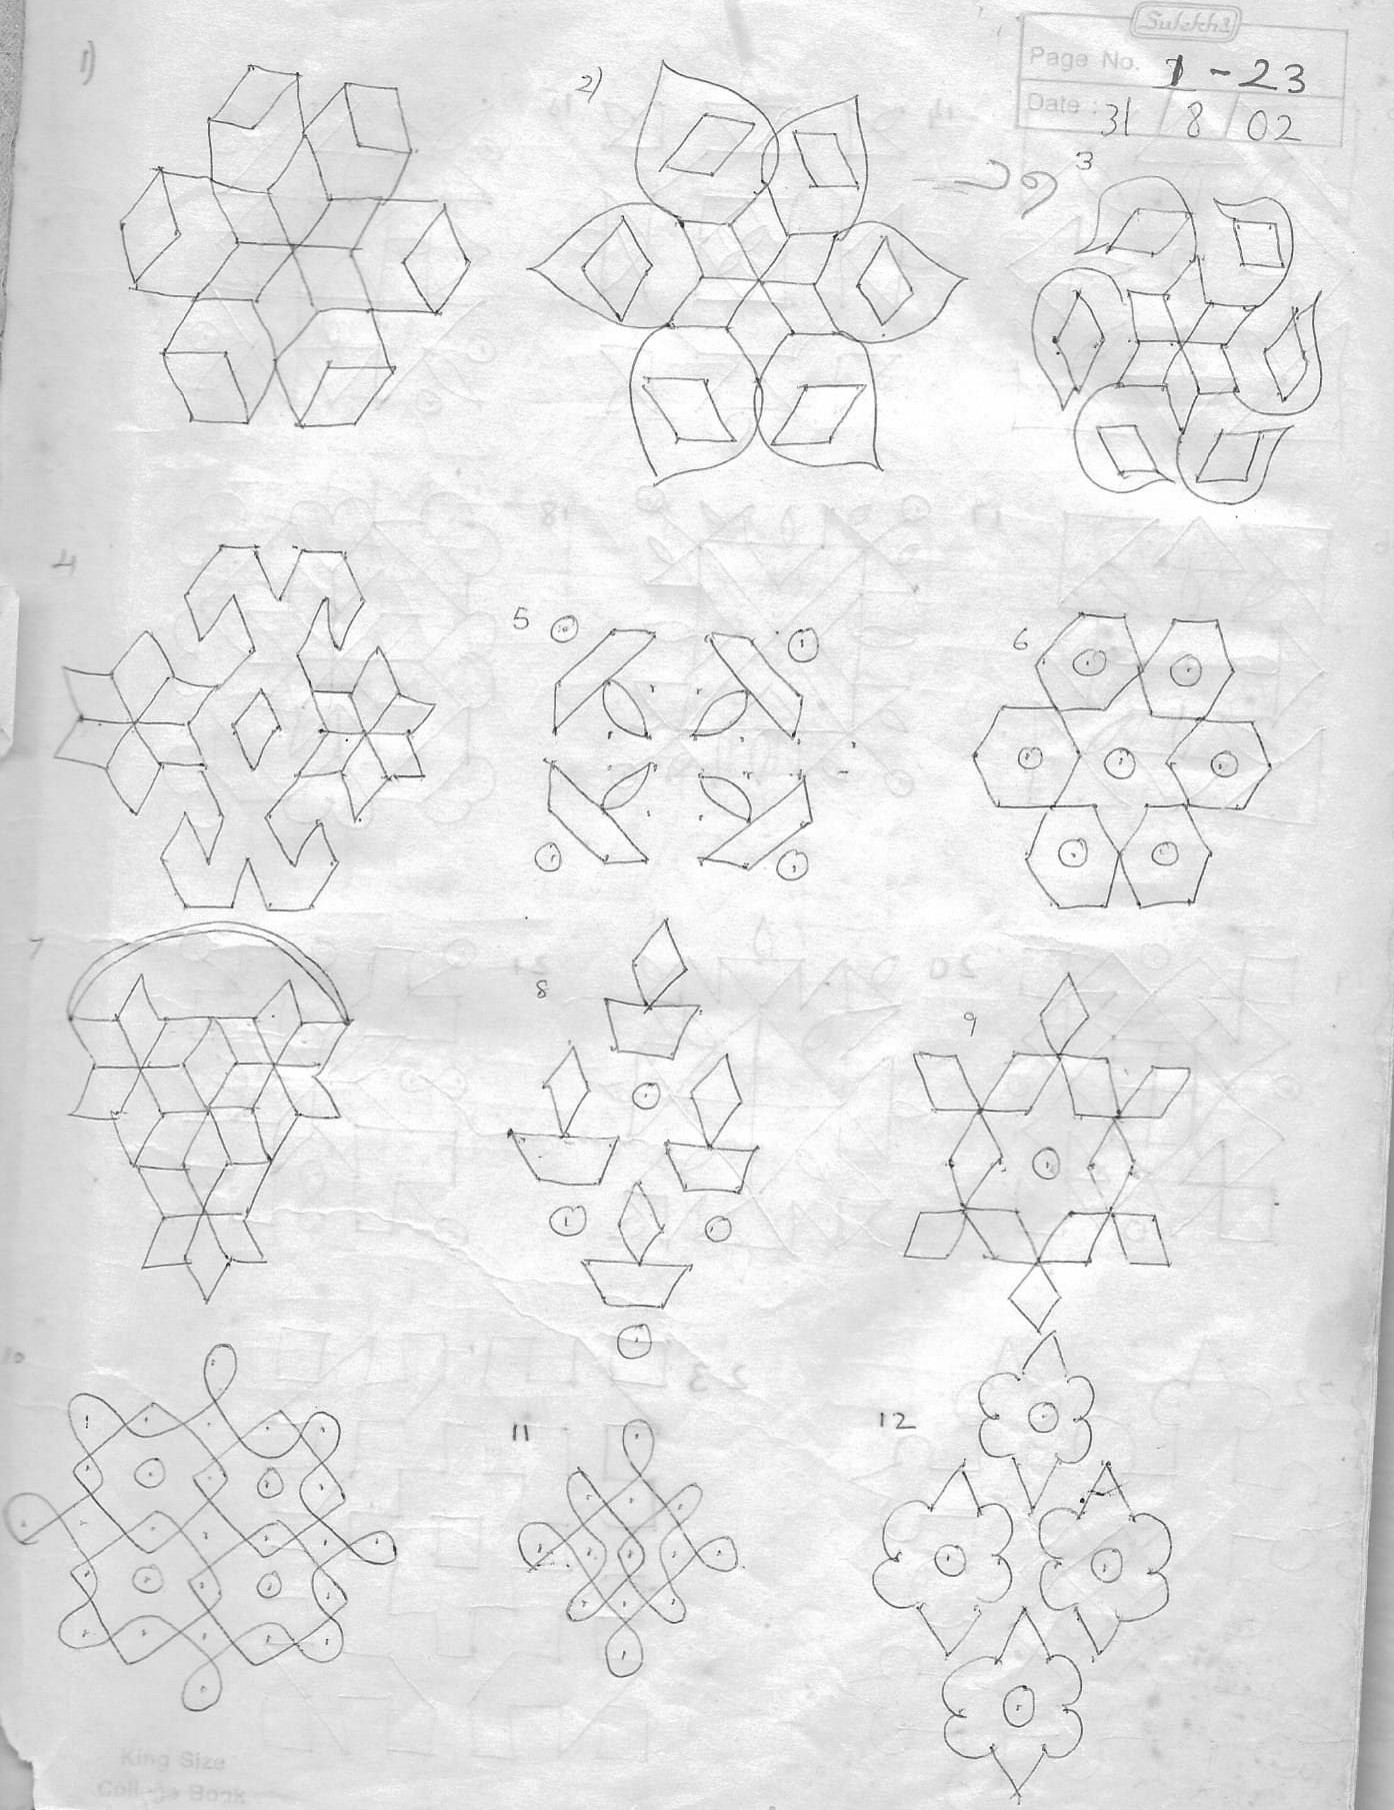 Sulekha
Page No. 1-23
Date : 31 / 8 / 02
1)
2)
3
4
5
6
7
8
9
10
11
12
King Size
College Book